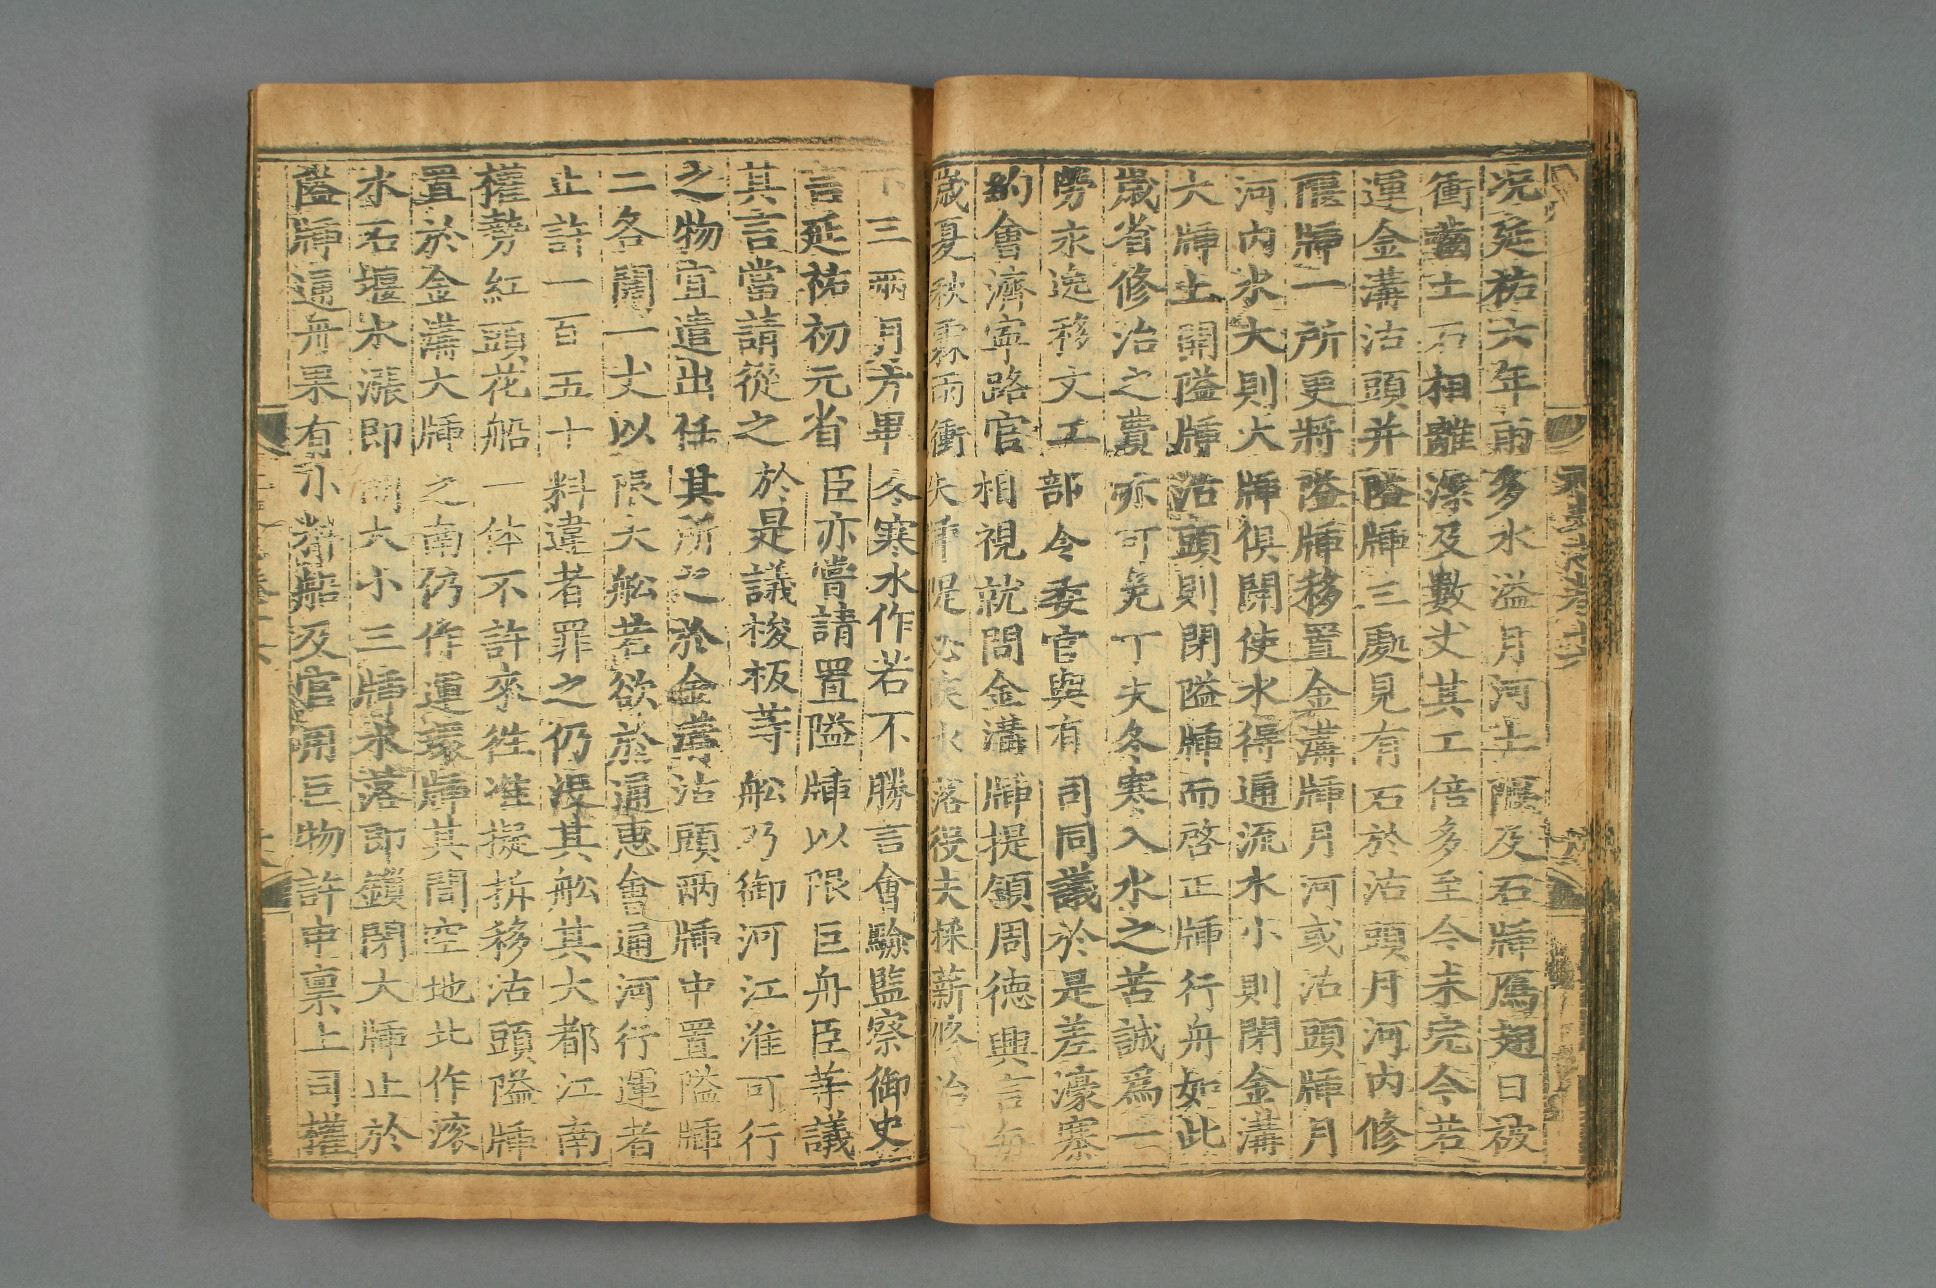 况延祐六年雨多水溢月河土堰及石牐鴈翅日被
衝齧土石相離深及數丈其工倍多至今未完今若
運金溝沽頭并隘牐三處見有石於沽頭月河內修
堰牐一所更將隘牐移置金溝牐月河或沽頭牐月
河內水大則大牐俱開使水得通流水小則閉金溝
大牐土開隘牐沽頭則閉隘牐而啓正牐行舟如此
歲省修治之費亦可免丁夫冬寒入水之苦誠爲一
勞永逸移文工部令委官與有司同議於是差濠寨
約會濟寧路官相視就問金溝牐提領周德興言每
歲夏秋霖雨衝失牐堤必候水落役夫採薪修治
不三兩月方畢冬寒水作若不勝言會驗監察御史
言延祐初元省臣亦嘗請置隘牐以限巨舟臣等議
其言當請從之於是議梭板等舩乃御河江淮可行
之物宜遣出任其所之於金溝沽頭兩牐中置隘牐
二各闊一丈以限大舩若欲於通惠會通河行運者
止許一百五十料違者罪之仍沒其舩其大都江南
權勢紅頭花船一体不許來徃准擬拆移沽頭隘牐
置於金溝大牐之南仍作運環牐其間空地北作滚
水石堰水漲即開大小三牐水落即鎖閉大牐止於
隘牐通舟果有小料船及官用巨物許申稟上司權